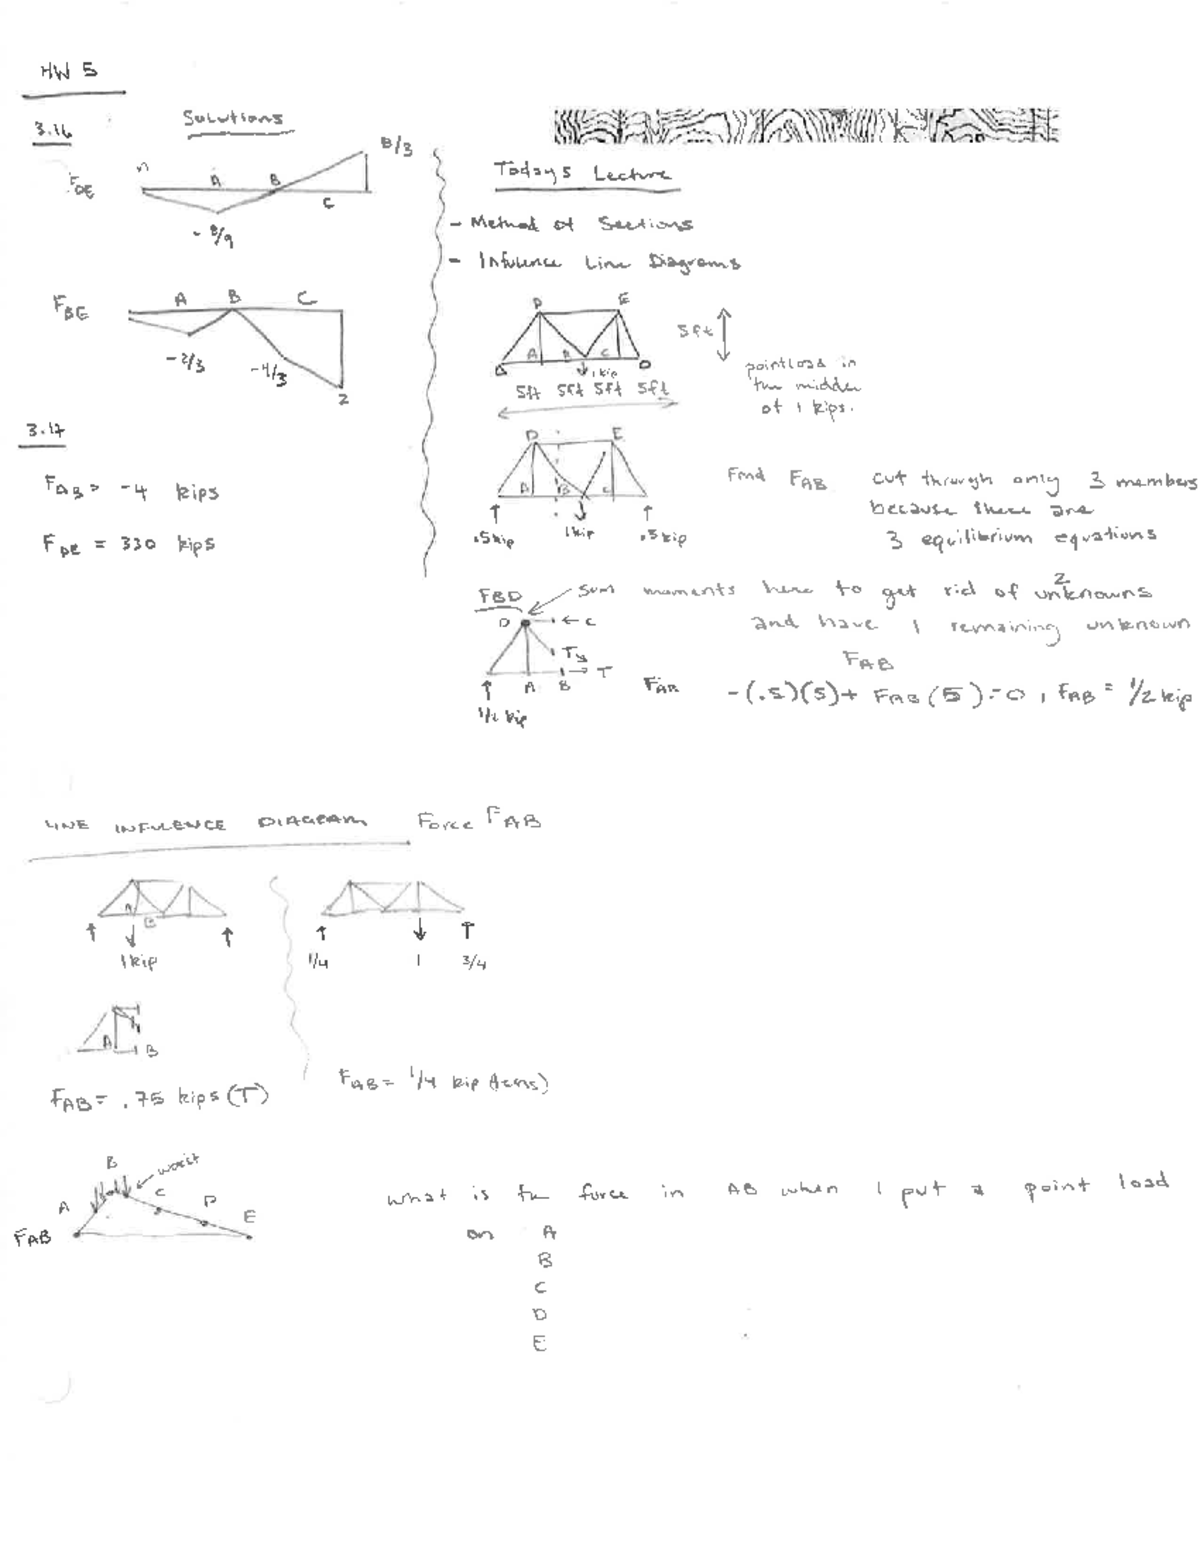 HW 5
3.16
Solutions
F DE
A
B
C
8/3
- 8/9
F BE
A
B
C
-2/3
-4/3
2
3.17
FAB = -4 kips
FDE = 330 kips
Todays Lecture
- Method of Sections
- Infulence Line Diagrams
D E
A B C
1 kip
5ft 5ft 5ft 5ft
5ft
point load in
the middle
of 1 kips.
D E
A B C
.5kip 1kip .5kip
Find FAB cut through only 3 members
because there are
3 equilibrium equations
FBD
sum moments here to get rid of 2 unknowns
and have 1 remaining unknown
FAB
D
C
Ty
T
A B
1/2 kip
FAB -(.5)(5)+ FAB(5)=0, FAB = 1/2 kip
LINE INFULENCE DIAGRAM Force FAB
A
B
1kip
1/4 1 3/4
A
B
FAB = .75 kips (T)
FAB = 1/4 kip (tens)
B
worst
A
C
D
E
FAB
what is the force in AB when I put a point load
on A
B
C
D
E